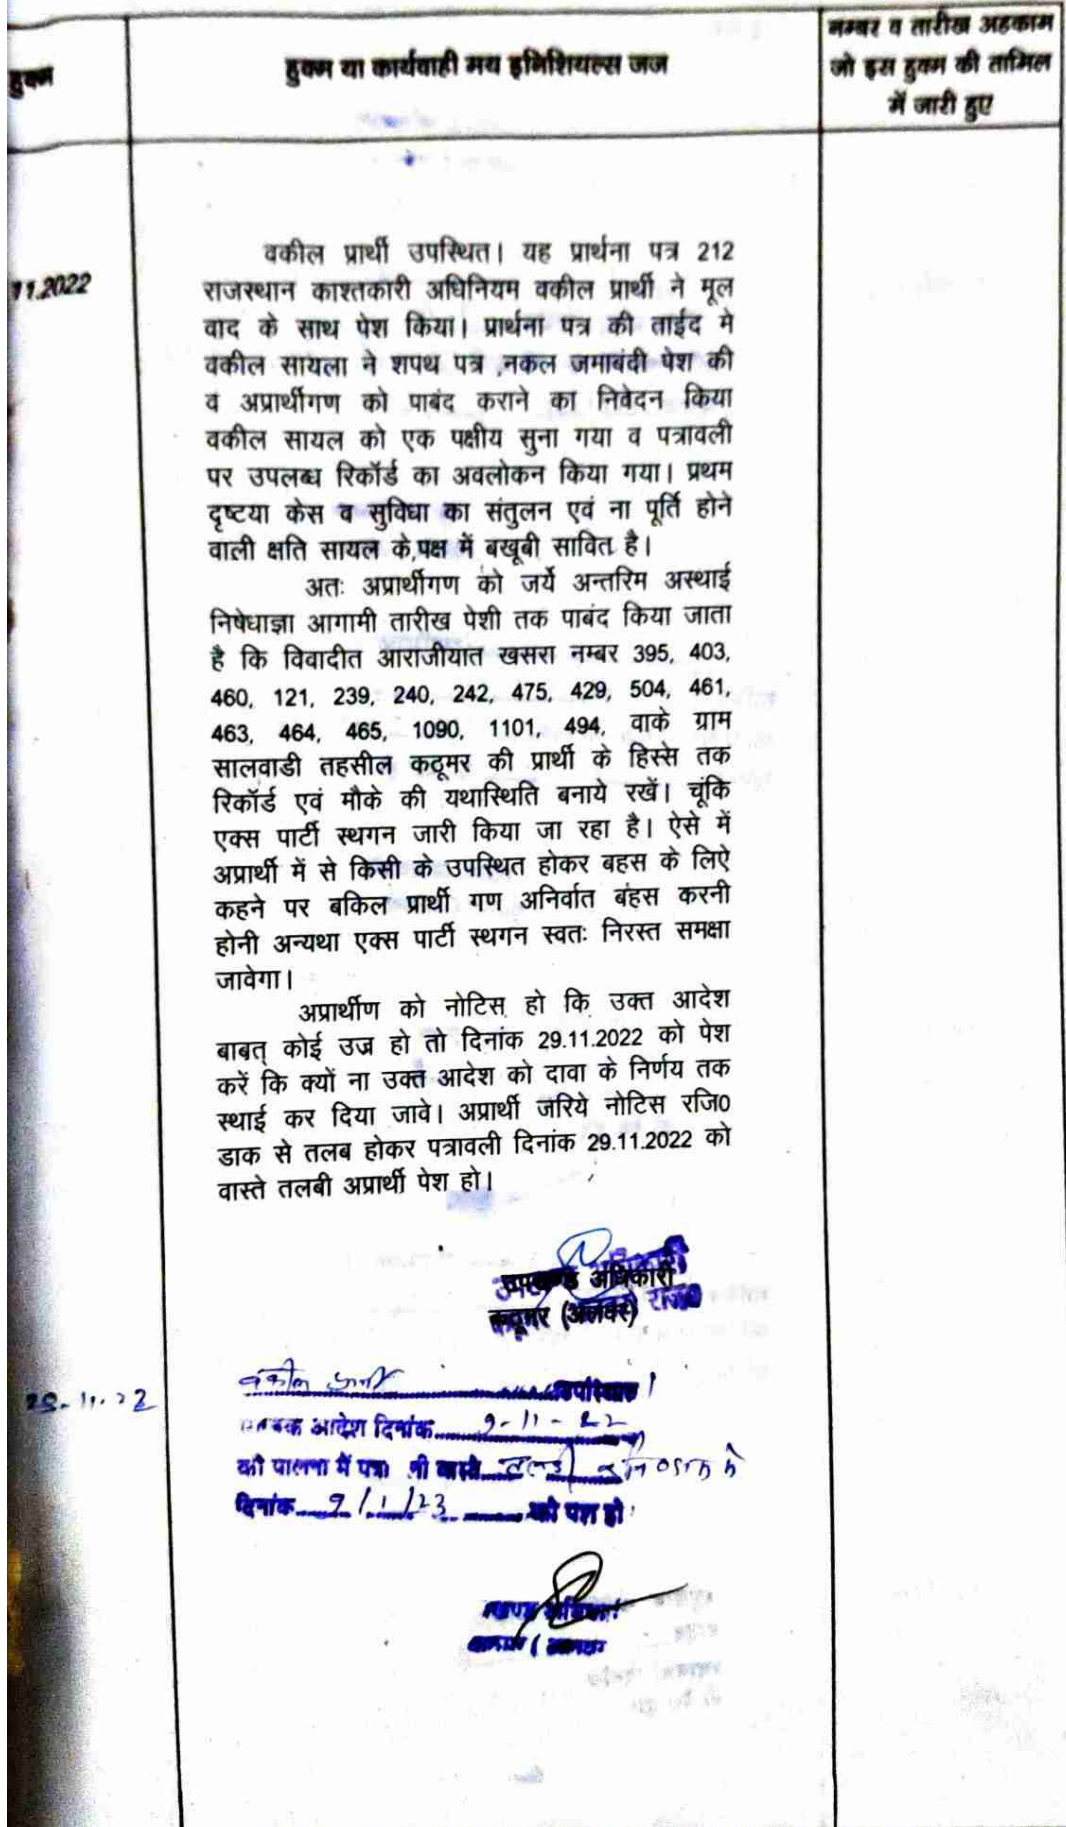 हुक्म
हुक्म या कार्यवाही मय इनिशियल्स जज
नम्बर व तारीख अहकाम
जो इस हुक्म की तामिल
में जारी हुए
11.2022
वकील प्रार्थी उपस्थित। यह प्रार्थना पत्र 212
राजस्थान काश्तकारी अधिनियम वकील प्रार्थी ने मूल
वाद के साथ पेश किया। प्रार्थना पत्र की ताईद मे
वकील सायला ने शपथ पत्र ,नकल जमाबंदी पेश की
व अप्रार्थीगण को पाबंद कराने का निवेदन किया
वकील सायल को एक पक्षीय सुना गया व पत्रावली
पर उपलब्ध रिकॉर्ड का अवलोकन किया गया। प्रथम
दृष्टया केस व सुविधा का संतुलन एवं ना पूर्ति होने
वाली क्षति सायल के,पक्ष में बखूबी सावित है।
अतः अप्रार्थीगण को जर्ये अन्तरिम अस्थाई
निषेधाज्ञा आगामी तारीख पेशी तक पाबंद किया जाता
है कि विवादीत आराजीयात खसरा नम्बर 395, 403,
460, 121, 239, 240, 242, 475, 429, 504, 461,
463, 464, 465, 1090, 1101, 494, वाके ग्राम
सालवाडी तहसील कठूमर की प्रार्थी के हिस्से तक
रिकॉर्ड एवं मौके की यथास्थिति बनाये रखें। चूंकि
एक्स पार्टी स्थगन जारी किया जा रहा है। ऐसे में
अप्रार्थी में से किसी के उपस्थित होकर बहस के लिऐ
कहने पर बकिल प्रार्थी गण अनिर्वात बंहस करनी
होनी अन्यथा एक्स पार्टी स्थगन स्वतः निरस्त समक्षा
जावेगा।
अप्रार्थीण को नोटिस हो कि उक्त आदेश
बाबत् कोई उज्र हो तो दिनांक 29.11.2022 को पेश
करें कि क्यों ना उक्त आदेश को दावा के निर्णय तक
स्थाई कर दिया जावे। अप्रार्थी जरिये नोटिस रजि0
डाक से तलब होकर पत्रावली दिनांक 29.11.2022 को
वास्ते तलबी अप्रार्थी पेश हो।
उपखण्ड अधिकारी
कठूमर (अलवर) राज0
29-11-22
वकील प्रार्थी उपस्थित।
आदेश दिनांक 9-11-22
की पालना में वास्ते तलबी
दिनांक 9/1/23 को पेश हो